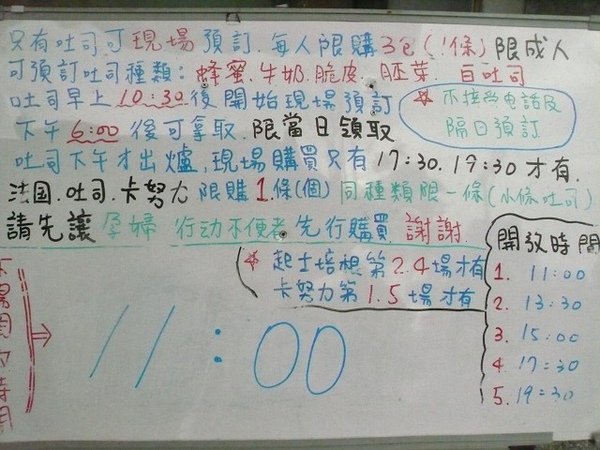 只有吐司可現場預訂.每人限購3包(1條)限成人
可預訂吐司種類:蜂蜜.牛奶.脆皮.胚芽.白吐司
吐司早上10:30後開始現場預訂
不接受電話及
隔日預訂
下午6:00後可拿取.限當日領取
吐司下午才出爐,現場購買只有17:30.19:30才有.
法国.吐司.卡努力限購1條(個)同種類限一條(小條吐司)
請先讓孕婦 行动不便者先行購買 謝謝.
起士培根第2.4場才有
卡努力第1.5場才有
開放時間
1. 11:00
2. 13:30
3. 15:00
4. 17:30
5. 19:30
11:00